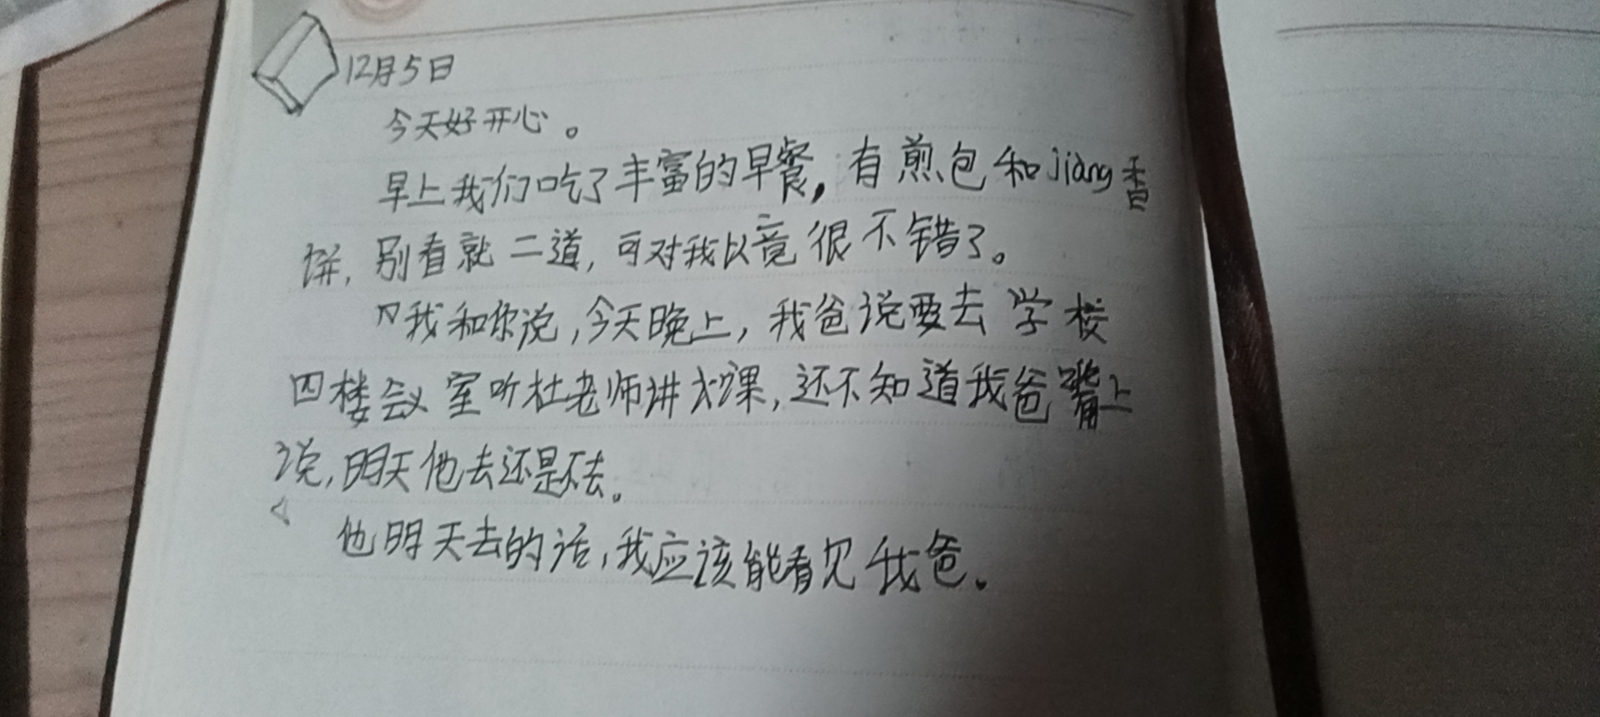 12月5日
今天好开心。
早上我们吃了丰富的早餐,有煎包和jiàng香
饼,别看就二道,可对我以竟很不错了。
我和你说,今天晚上,我爸说要去学校
四楼会议室听杜老师讲大课,还不知道我爸嘴上
说,明天他去还是不去。
他明天去的话,我应该能看见我爸。